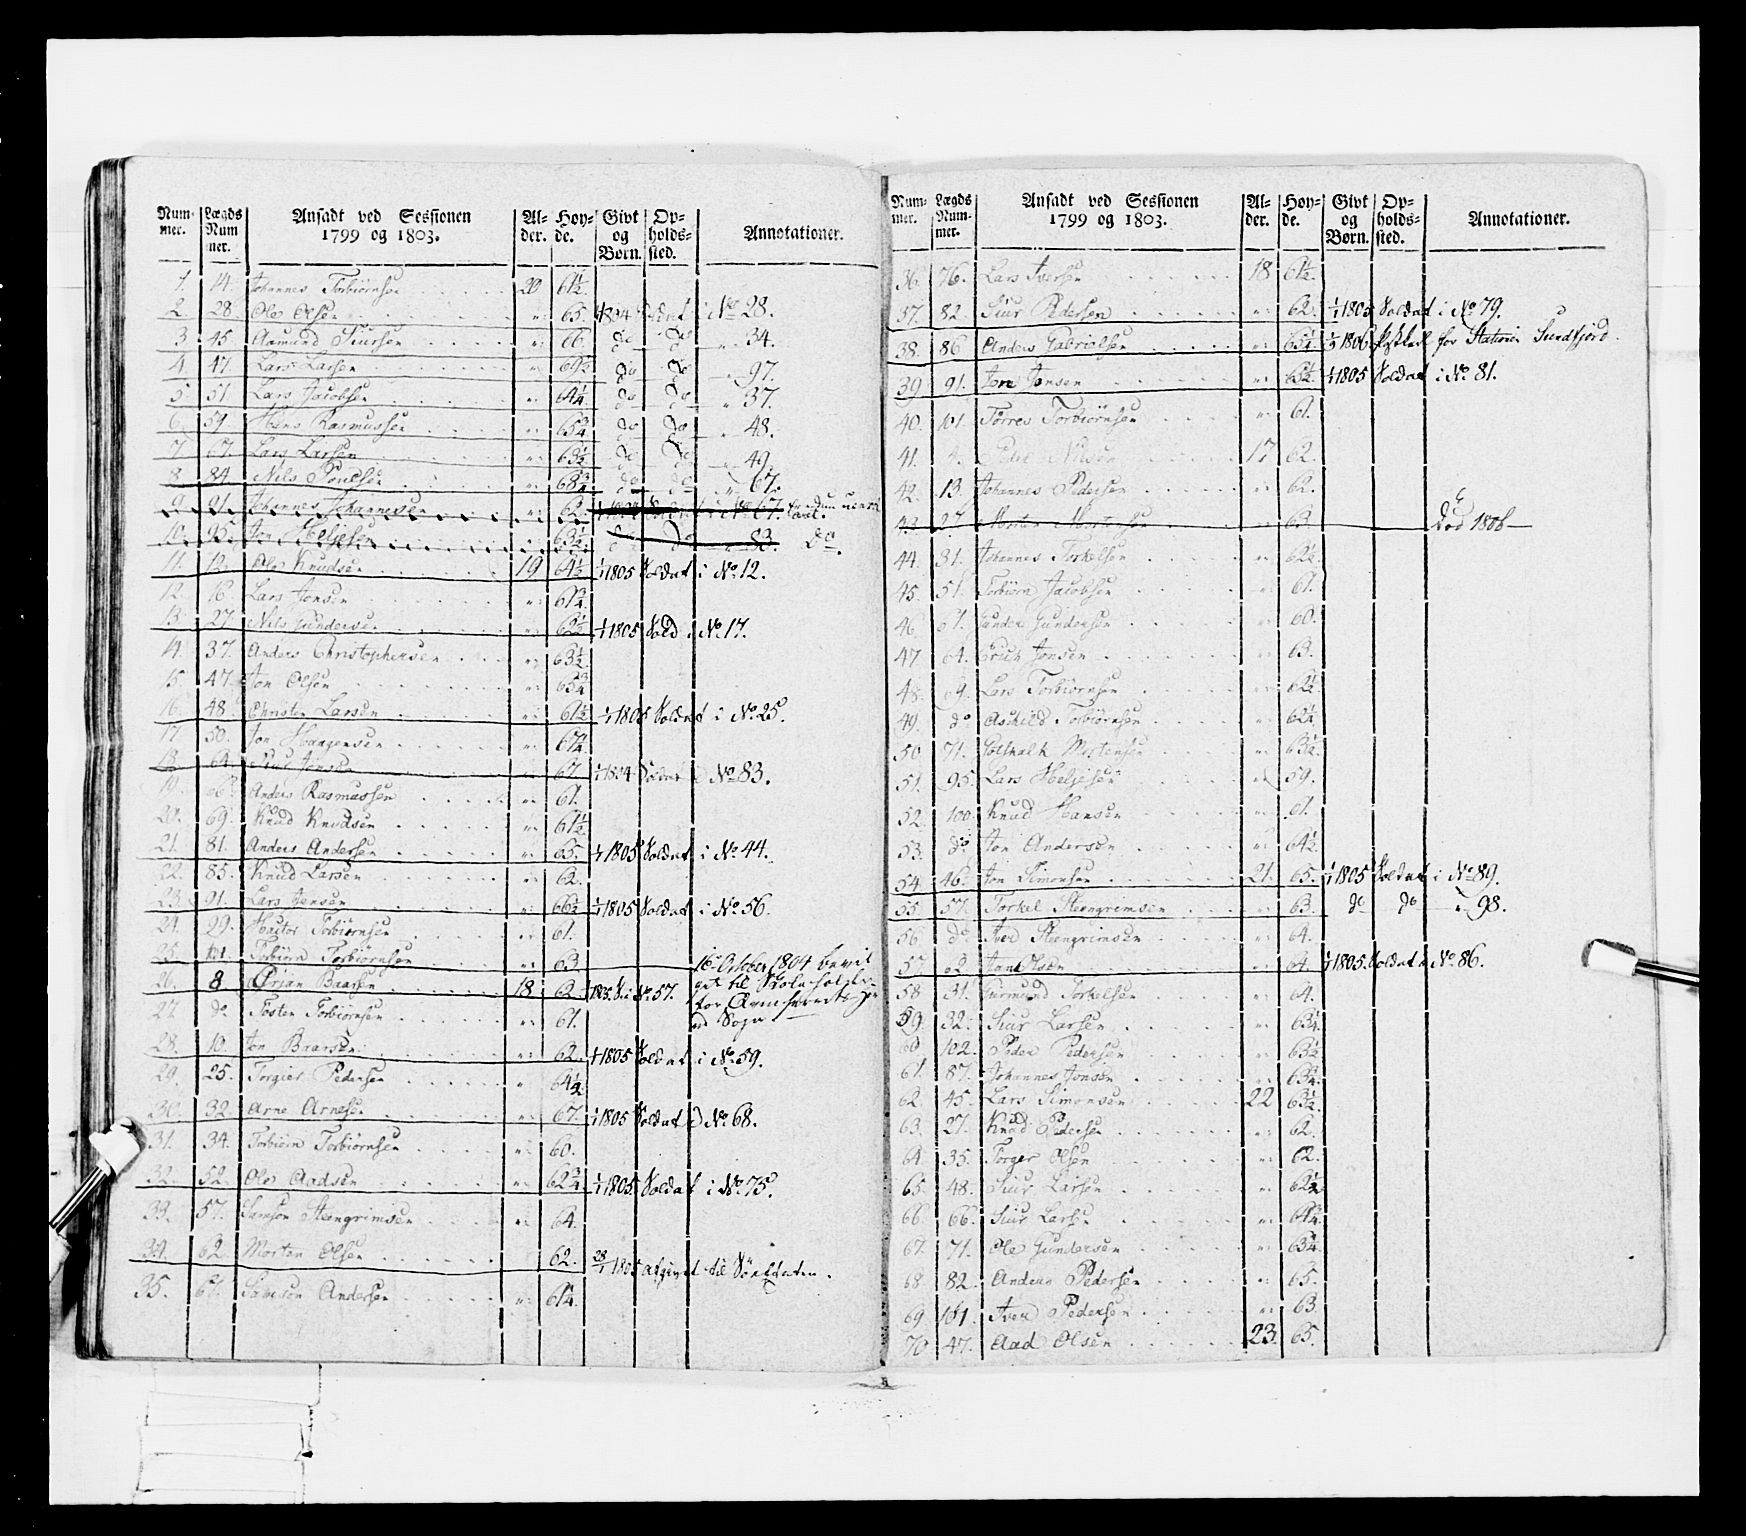 Num- Lægds Ansadt ved Sessionen Al- Høy- Givt Op- Annotationer.
mer. Num 1799 og 1803. der. de. og holds-
mer. Børn. sted.
1. 14. Johannes Torbiørnsen 20 61½.
2. 28. Ole Olsen „ 65. 1804 Soldat i No 28.
3. 45. Aamund Siursen „ 66. do do „ 34.
4. 47. Lars Larsen „ do do „ 97.
5. 51. Lars Jacobsen „ 64¼. do do „ 37.
6. 59. Hans Rasmussen „ 65¾. do do „ 48.
7. 67. Lars Larsen „ 63½. do do „ 49.
8. 84. Nils „ 68¾. do do „ 67.
9. 91. Johannes Johannesen „ 62. Soldat i No 67.
10. 95. Jon Heljesen „ 63½. do do „ 83. do.
11. 12. Ole Knudsen 19 64½. 1/1 1805 Soldat i No. 12.
12. 16. Lars Jonsen „ 61¾.
13. 27. Nils Gundersen „ 62½. 1/1 1805 Sold. i No. 17.
14. 37. Anders Christophersen „ 63½.
15. 47. Jon Olsen „ 65¾.
16. 48. Christen Larsen „ 61½. 1/1 1805 Soldat i No. 25.
17. 50. Jon Haagensen „ 67¼.
18. 64. Jensen „ 67. 1/1 1804 Soldat No 83.
19. 66. Anders Rasmussen „ 61.
20. 69. Knud Knudsen „ 61½.
21. 81. Anders Andersen „ 65. 1/1 1805 Soldat i No. 44.
22. 85. Knud Larsen „ 62.
23. 91. Lars Jensen „ 66½. 1/1 1805 Soldat i No. 56.
24. 99. Torbiørnsen „ 61.
25. 101. Torbiørn Torbiørnsen „ 63. 16 October 1804 bevil
26. 8 Ørjan Baarsen 18. 62. 1805. S. i No 57. get til Skoleholder
27. do Tosten Torbiørnsen „ 61. for
28. 10. Jon Baarsen „ 62. 1/1 1805 Soldat i No. 59.
29. 25. Torgier Pedersen „ 64½.
30. 32. Arne Arnesen „ 67. 1/1 1805 Soldat No. 68.
31. 34. Torbiørn Torbiørnsen „ 60.
32. 52. Ole Aadsen „ 62¾. 1/1 1805. Soldat i No. 75.
33. 57. Samson Steengrimsen „ 64.
34. 62. Morten Olsen 62. 28/1 1805 afgivet til Søe
35. 67. Samson Andersen „ 61¼.
Num- Lægds Ansadt ved Sessionen Al- Høy- Givt Op- Annotationer.
mer. Num- 1799 og 1803. der. de. og holds-
mer. Børn. sted.
36. 76. Lars Iversen 18 61½.
37. 82. Siur Pedersen „ 62. 1/1 1805 Soldat i No. 79.
38. 86. Anders Gabrielsen „ 65¼. 1806 for Sundfjord.
39. 91. Jon Jonsen „ 63½. 1/1 1805 Soldat i No. 81.
40. 101. Torres Torbiørnsen „ 61.
41. 4. Peder Nilsen 17 62.
42. 13. Johannes Pedersen „ 62.
43. 27. Morten Mortensen „ 63. Død 1806
44. 31. Johannes Torkelsen „ 62½.
45. 51. Torbiørn Jacobsen „ 61.
46. 61. Gunder Gundersen „ 60.
47. 64. Erich Jonsen „ 63.
48. 69. Lars Torbiørnsen „ 62½.
49. do Askild Torbiørnsen „ 62¼.
50. 71. Mortensen „ 63½.
51. 95. Lars Heljesen „ 59.
52. 100 Knud Hansen „ 61.
53. do Jon Andersen „ 64½.
54. 46. Jon Simonsen 21. 65. 1/1 1805 Soldat i No 89.
55. 57. Torkel Steengrimsen „ 63. do do „ 98.
56. do Iver Steengrimsen „ 64.
57. 62. Olsen „ 64. 1/1 1805. Soldat No 86.
58. 31. Gurmund Torkelsen „ 64.
59. 32. Siur Larsen „ 63¼.
60. 102. Peder Pedersen „ 63½.
61. 87. Johannes Jonsen „ 63¾.
62. 45. Lars Simonsen 22 63½.
63. 27. Knud Pedersen „ 62.
64. 35. Torger Olsen „ 62.
65. 48. Siur Larsen „ 62½.
66. 66. Siur Larsen „ 64¼.
67. 71. Ole Gundersen „ 63¼.
68. 82. Anders Pedersen „ 65.
69 101. Iver Pedersen „ 63
70 47. Aad Olsen 23. 65.